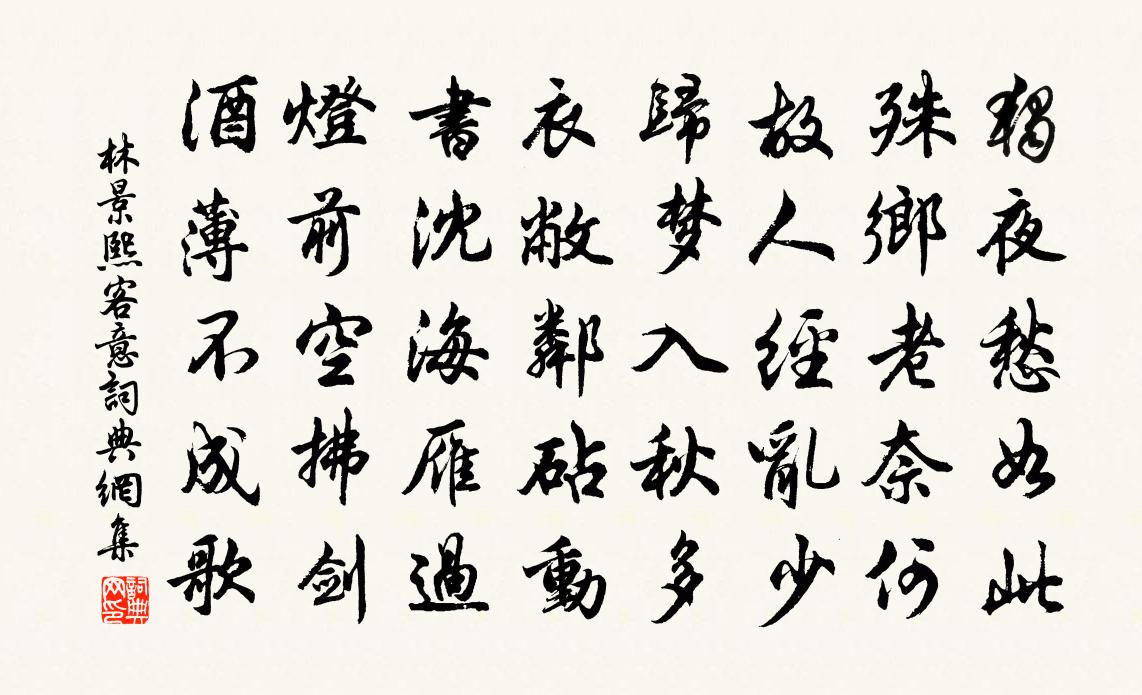 獨夜愁如此
殊鄉老奈何
故人經亂少
歸梦入秋多
衣敝鄰砧動
書沈海雁過
燈前空拂劍
酒薄不成歌
林景熙客意詞典網集
詞典网印